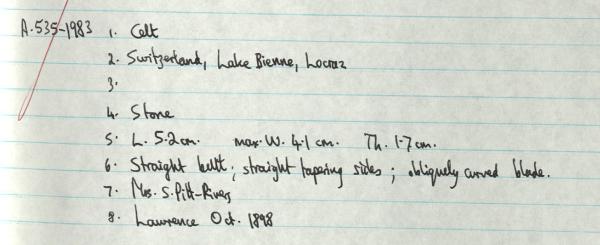 A.535-1983 1. Celt
2. Switzerland, Lake Bienne, Locraz
3.
4. Stone
5. L. 5.2cm. max. W. 4.1 cm. Th. 1.7cm.
6. Straight butt; straight tapering sides; obliquely curved blade.
7. Mrs. S. Pitt-Rivers
8. Lawrence Oct. 1898